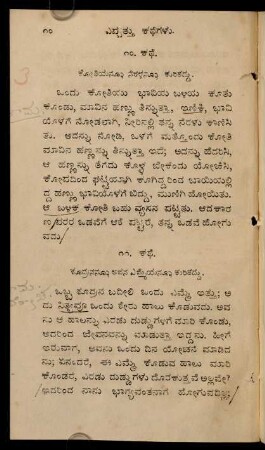 ೧೦ ಎಪ್ಪತ್ತು ಕಥೆಗಳು.
೧೦. ಕಥೆ.
ಕೋತಿಯನ್ನೂ ನೆರಳನ್ನೂ ಕುರಿತದ್ದು.
ಒಂದು ಕೋತಿಯು ಭಾವಿಯ ಬಳಿಯ ಕೂತು
ಕೊಂಡು, ಮಾವಿನ ಹಣ್ಣು ತಿನ್ನುತ್ತಾ, ಇಣಿಕಿ, ಭಾವಿ
ಯೊಳಗೆ ನೋಡಲಾಗಿ, ನೀರಿನಲ್ಲಿ ತನ್ನ ನೆರಳು ಕಾಣಿಸಿ
ತು. ಅದನ್ನು ನೋಡಿ, ಒಳಗೆ ಮತ್ತೊಂದು ಕೋತಿ
ಮಾವಿನ ಹಣ್ಣನ್ನು ತಿನ್ನುತ್ತಾ ಇದೆ; ಅದನ್ನು ಹೆದರಿಸಿ,
ಆ ಹಣ್ಣನ್ನು ತೆಗದು ಕೊಳ್ಳ ಬೇಕೆಂದು ಯೋಚಿಸಿ,
ಕೋಪದಿಂದ ಘಟ್ಟಿಯಾಗಿ ಕೂಗಿದ್ದರಿಂದ ಬಾಯಿಯಲ್ಲಿ
ದ್ದ ಹಣ್ಣು ಭಾವಿಯೊಳಗೆ ಬಿದ್ದು, ಮುಣಿಗಿ ಹೋಯಿತು.
ಆ ಬಳಿಕ್ಕ ಕೋತಿ ಬಹು ವ್ಯಸನ ಪಟ್ಟಿತು. ಆದಕಾರ
ಣ ಪರರ ಒಡವೆಗೆ ಆಶೆ ಪಟ್ಟರೆ, ತನ್ನ ಒಡವೆ ಹೋಗು
ವದು.
೧೧. ಕಥೆ.
ಶೂದ್ರನನ್ನೂ ಅವನ ಎಮ್ಮೆಯನ್ನೂ ಕುರಿತದ್ದು.
ಒಬ್ಬ ಶೂದ್ರನ ಬದೀಲಿ ಒಂದು ಎಮ್ಮೆ ಇತ್ತು; ಅ
ದು ನಿತ್ಯವೂ ಒಂದು ಶೇರು ಹಾಲು ಕೊಡುವದು. ಅವ
ನು ಆ ಹಾಲನ್ನು ಎರಡು ದುಡ್ಡುಗಳಿಗೆ ಮಾರಿ ಕೊಂಡು,
ಅದರಿಂದ ಜೀವನವನ್ನು ಮಾಡುತ್ತಾ ಇದ್ದನು. ಹೀಗೆ
ಇರುವಾಗ, ಅವನು ಒಂದು ದಿನ ಯೋಚನೆ ಮಾಡಿದ
ನು; ಏನಂದರೆ, ಈ ಎಮ್ಮೆ ಕೊಡುವ ಹಾಲು ಮಾರಿ
ಕೊಂಡರೆ, ಎರಡು ದುಡ್ಡುಗಳು ದೊರಕುತ್ತವೆ ಅಲ್ಲವೇ?
ಇದರಿಂದ ನಾನು ಭಾಗ್ಯವಂತನಾಗಿ ಹೋಗುವದಿಲ್ಲ;